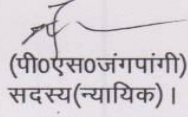 (पी0एस0जंगपांगी)
सदस्य(न्यायिक)।